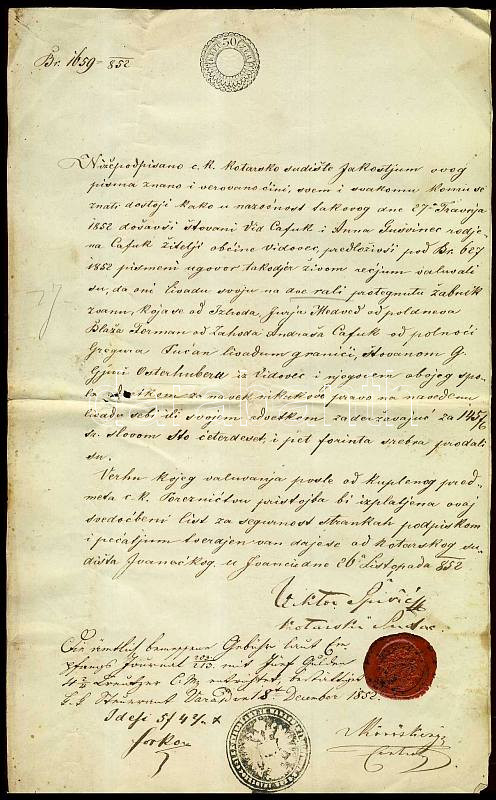 50
Br. 1659 - 852
Nižepodpisano c. k. kotarsko sudište jakostjum ovog
pisma znano i verovano čini, svem i svakomu komu se
znati dostoji kako u nazočnost takovog dne 27og Travnja
1852 došavši štovani Vid Cafuk i Anna rodje-
na Cafuk žitelji občine Vidovec, predloživši pod Br. 627
1852 pismeni ugovor takodjer živom rečjum valuvali
su, da oni livadu svoju na dve rali protegnutu žabnik
zvanu, koja se od Izhoda, Jurja Medved od poldneva
Blaža Ferman od Zahoda Andraša Cafuk od polnoći
Gregura Fučan livadum graniči, štovanom G.
Gjuri Osterhuberu iz Vidovec i njegovem obojeg spo-
la za navek nikakovo pravo na navedenu
livadu sebi ili svojem odvetkom zaderžavajuć za 145 f
sr. slovom sto četerdeset, i pet forinta srebra prodali
su.
Verhu kojeg valuvanja posle od kupljenog pred-
meta c. k. Porezničtvu pristojba bi izplatjena ovaj
svedočbeni list za segurnost strankah podpiskom
i pečatjum tverdjen van daje se od kotarskog su-
dišta Ivanečkog. u Ivancu dne 26o Listopada 852
Viktor
kotarski Sudac
Die ämtlich bemessene Gebühr laut Em-
pfangs Journal 213. mit fünf Gulden
4 2/4 Kreutzer C. M. entrichtet, bestättigt
k. k. Steueramt Varasdin 8t December 1852.
Idest 5 f 4 2/4 x